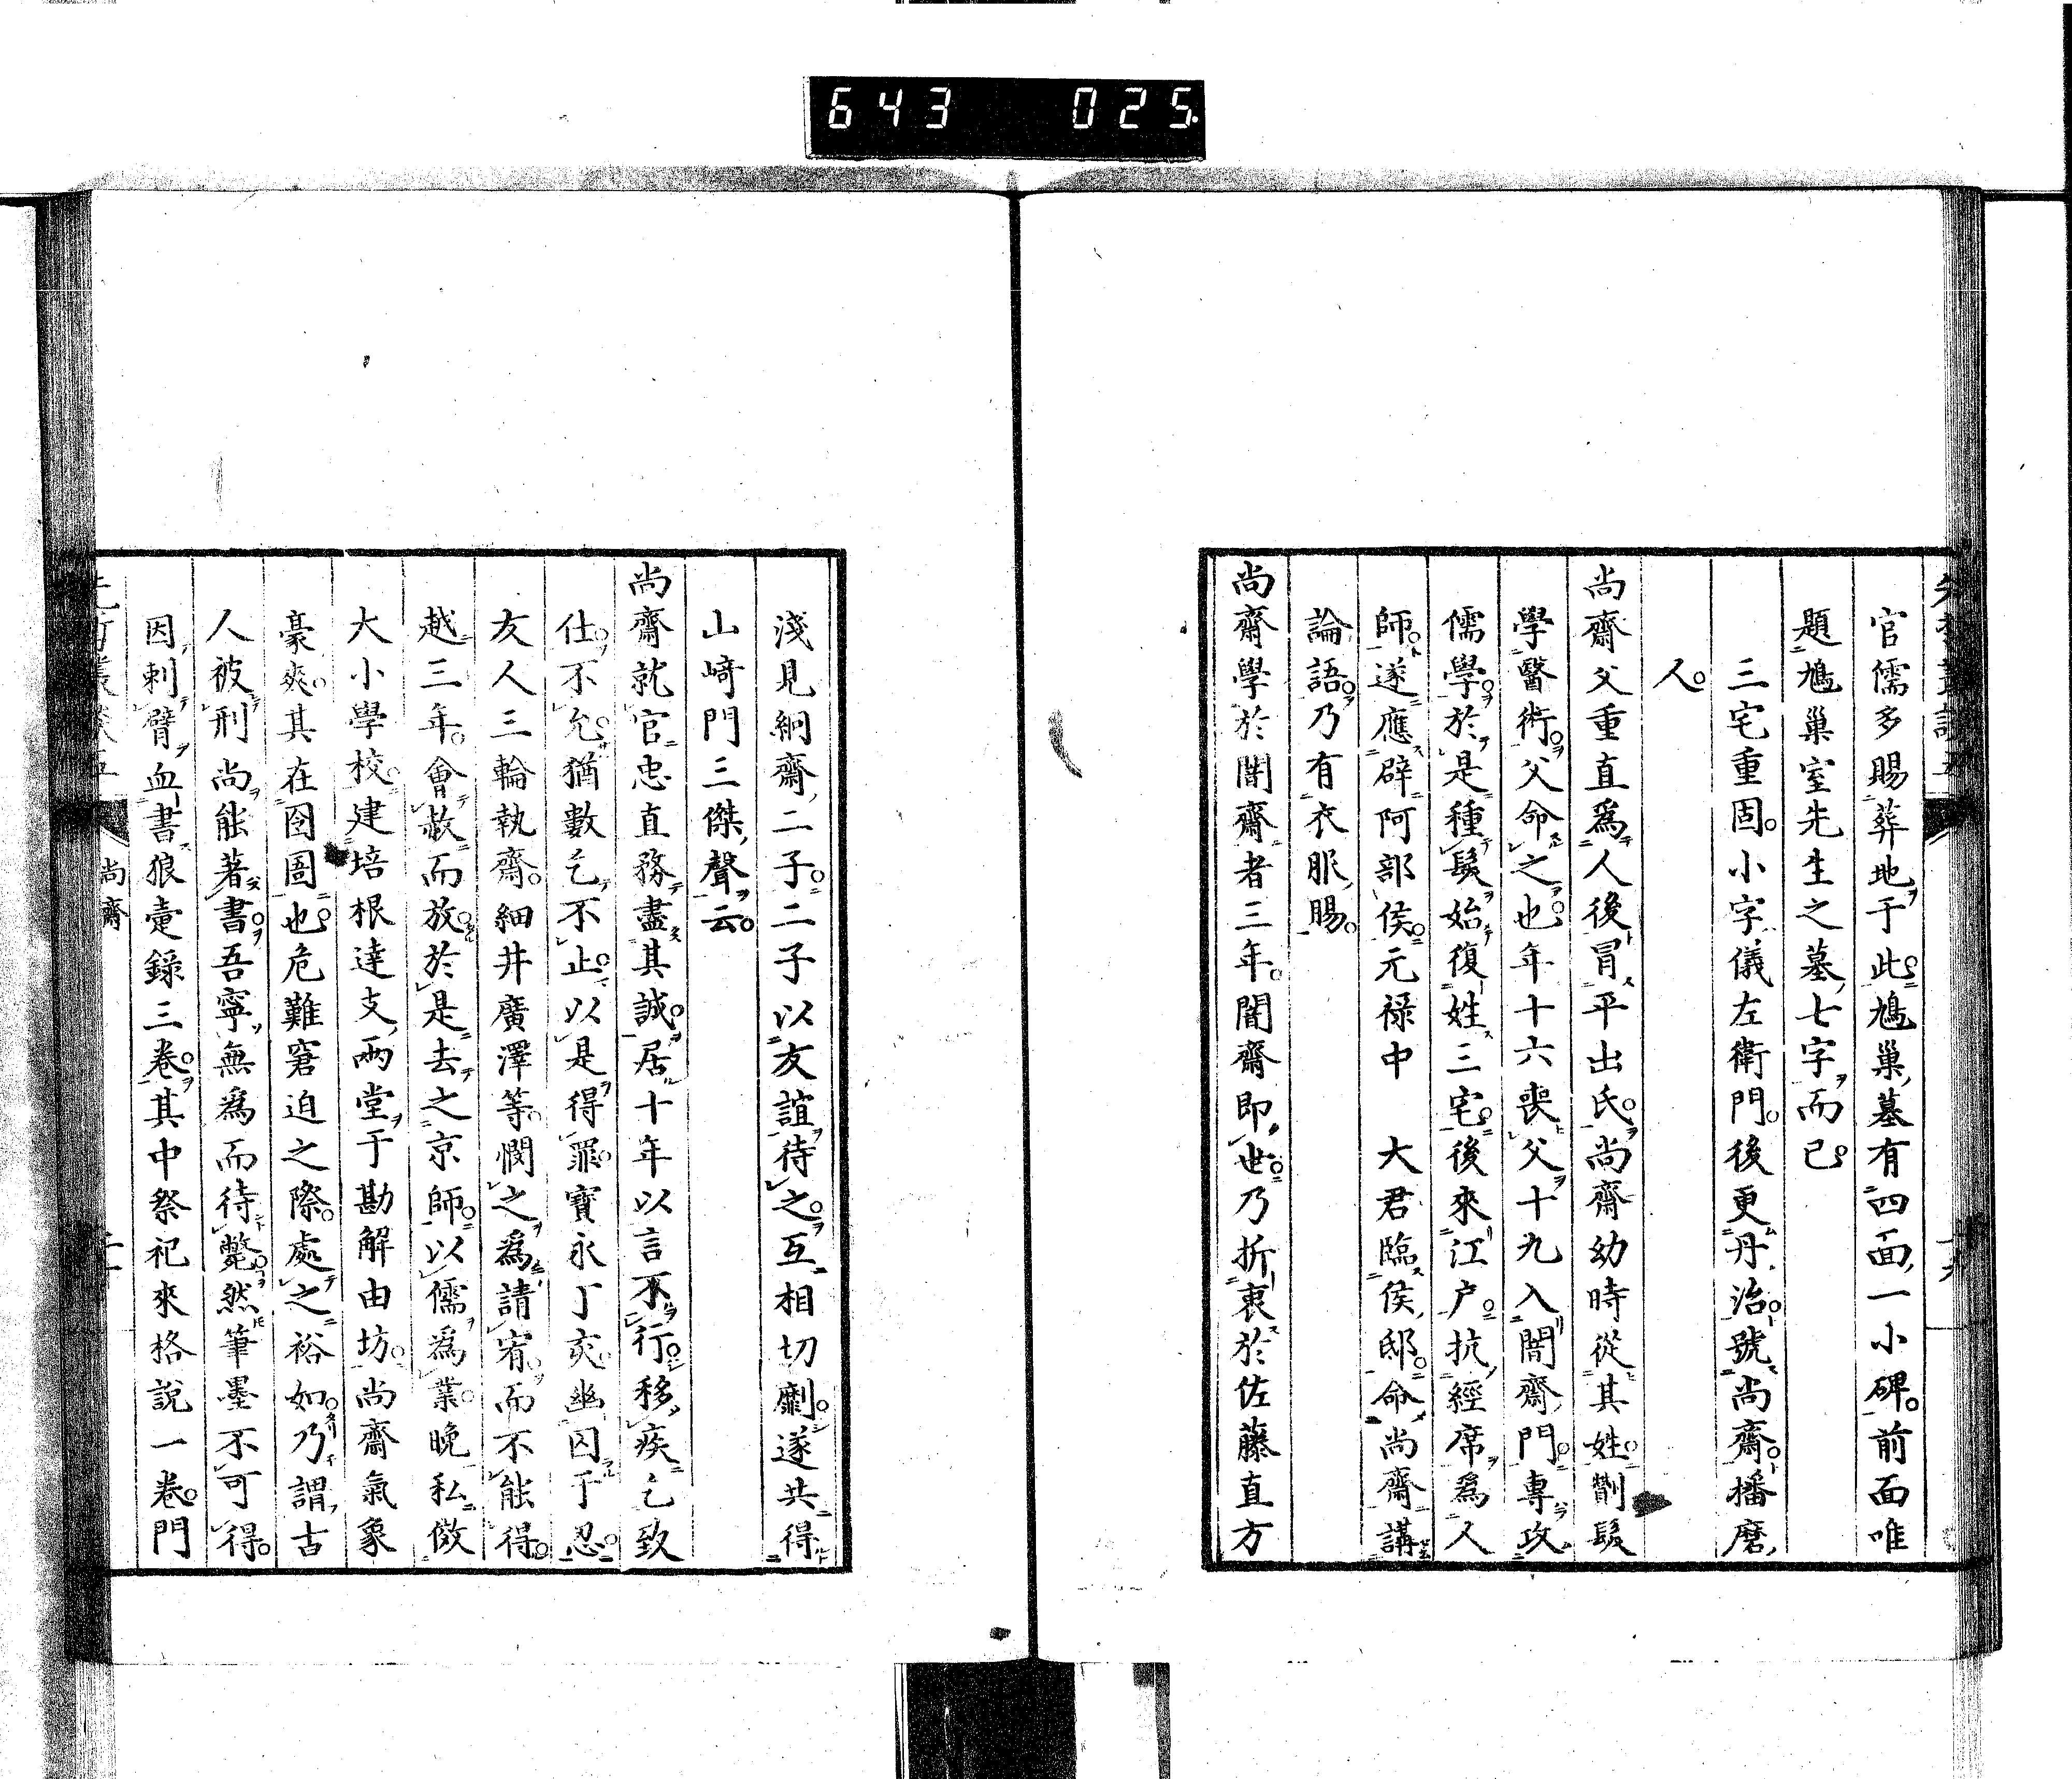 643 025.
官儒多賜葬地于此鳩巢墓有四面一小碑前面唯
題鳩巢室先生之墓七字而已
三宅重固小字儀左衛門後更丹治號尚齋播磨
人
尚齋父重直爲人後冐平出氏尚齋幼時從其姓髫髮
學醫術父命之也年十六喪父十九入闇齋門專攻
儒學於是種髮始復姓三宅後來江戶抗經席爲人
師遂應辟阿部侯元禄中 大君臨侯邸命尚齋講
論語乃有衣服賜
尚齋學於闇齋者三年闇齋即世乃折衷於佐藤直方
淺見絅齋二子二子以友誼待之互相切劘遂共得
山﨑門三傑聲云
尚齋就官忠直務盡其誠居十年以言不行移疾乞致
仕不允猶數乞不止以是得罪寶永丁亥幽囚于忍
友人三輪執齋細井廣澤等憫之爲請宥而不能得
越三年會赦而放於是去之京師以儒爲業晚私倣
大小學校建培根達支兩堂于勘解由坊尚齋氣象
豪爽其在囹圄也危難窘迫之際處之裕如乃謂古
人被刑尚能著書吾寧無爲而待斃然筆墨不可得
因刺臂血書狼疐錄三卷其中祭祀來格說一卷門
尚齋